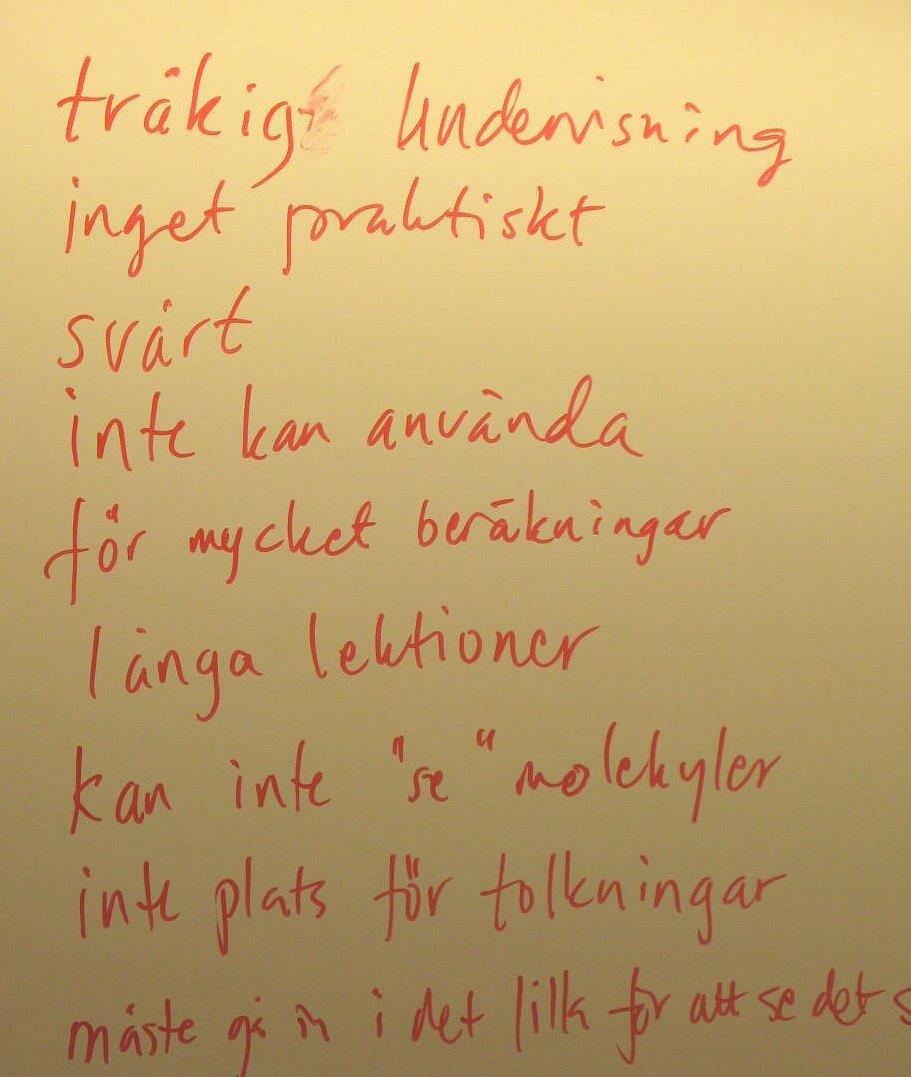 tråkig undervisning
inget praktiskt
svårt
inte kan använda
för mycket beräkningar
långa lektioner
kan inte "se" molekyler
inte plats för tolkningar
måste gå in i det lilla för att se det s